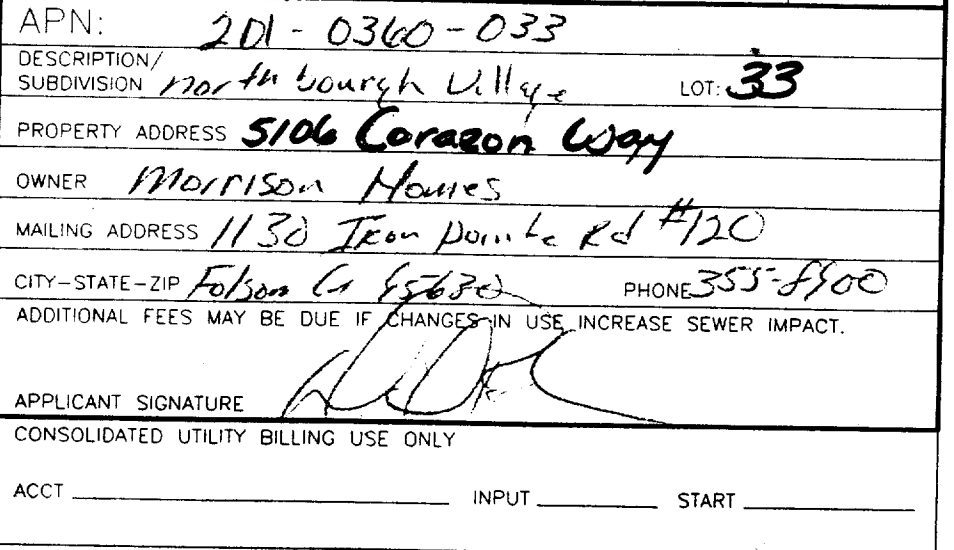 APN: 201-0360-033
DESCRIPTION/
SUBDIVISION northbourgh Village LOT: 33
PROPERTY ADDRESS 5106 Corazon Way
OWNER Morrison Homes
MAILING ADDRESS 1130 Iron pointe Rd #120
CITY-STATE-ZIP Folsom Ca 95630 PHONE 355-8900
ADDITIONAL FEES MAY BE DUE IF CHANGES IN USE INCREASE SEWER IMPACT.
APPLICANT SIGNATURE
CONSOLIDATED UTILITY BILLING USE ONLY
ACCT INPUT START